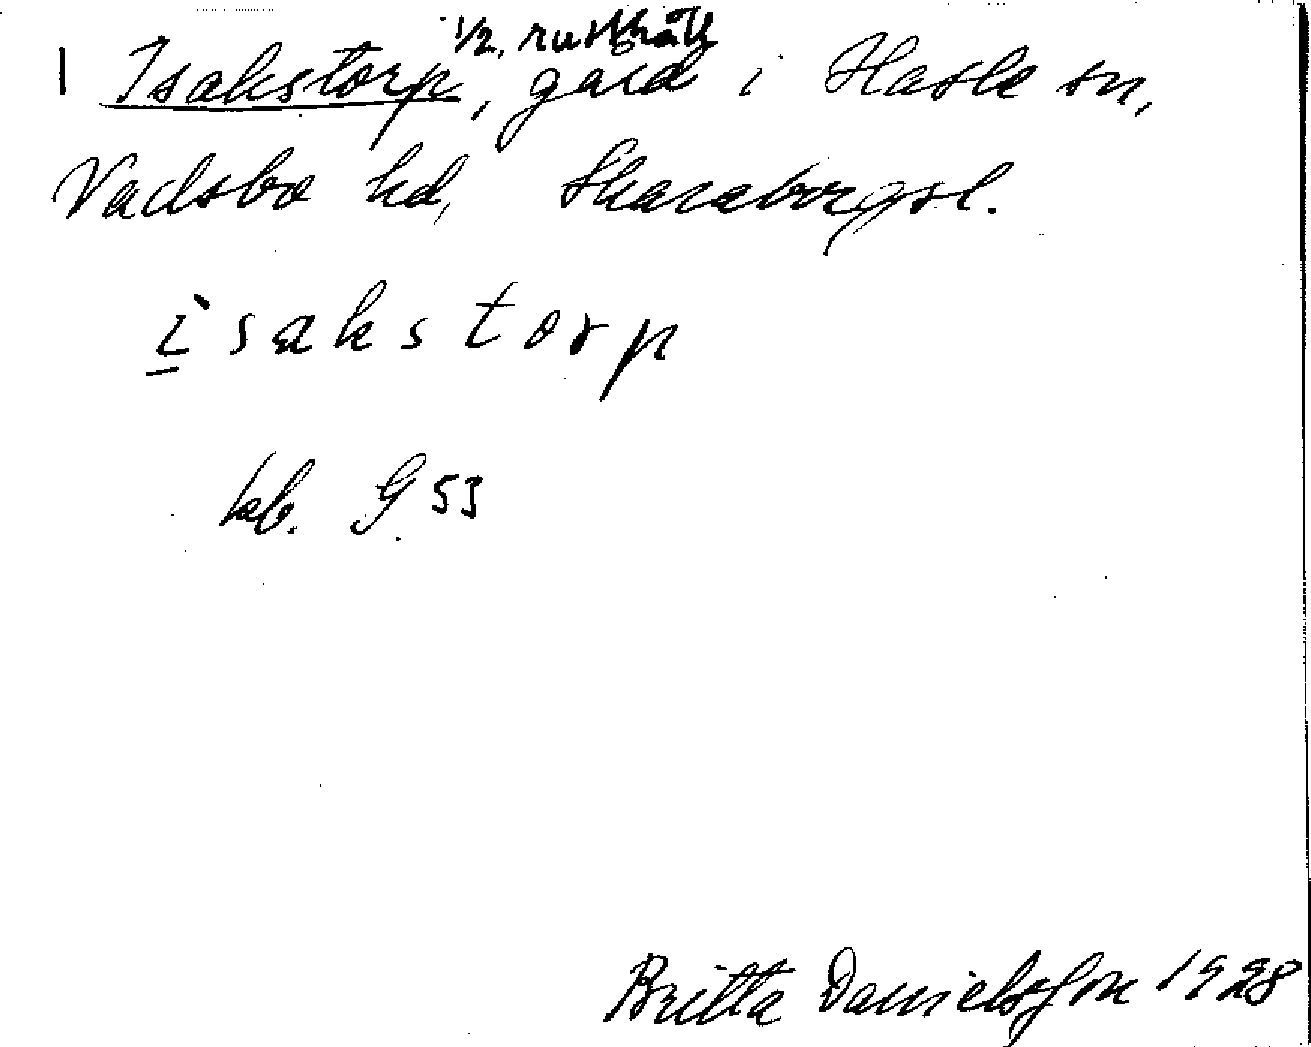 1/2, rusthåll
1 Isakstorp, gård i Hasle sn,
Vadsbo hd, Skaraborgsl.
ì̱sakstorp
kb. G. 53
Britta Danielsson 1928